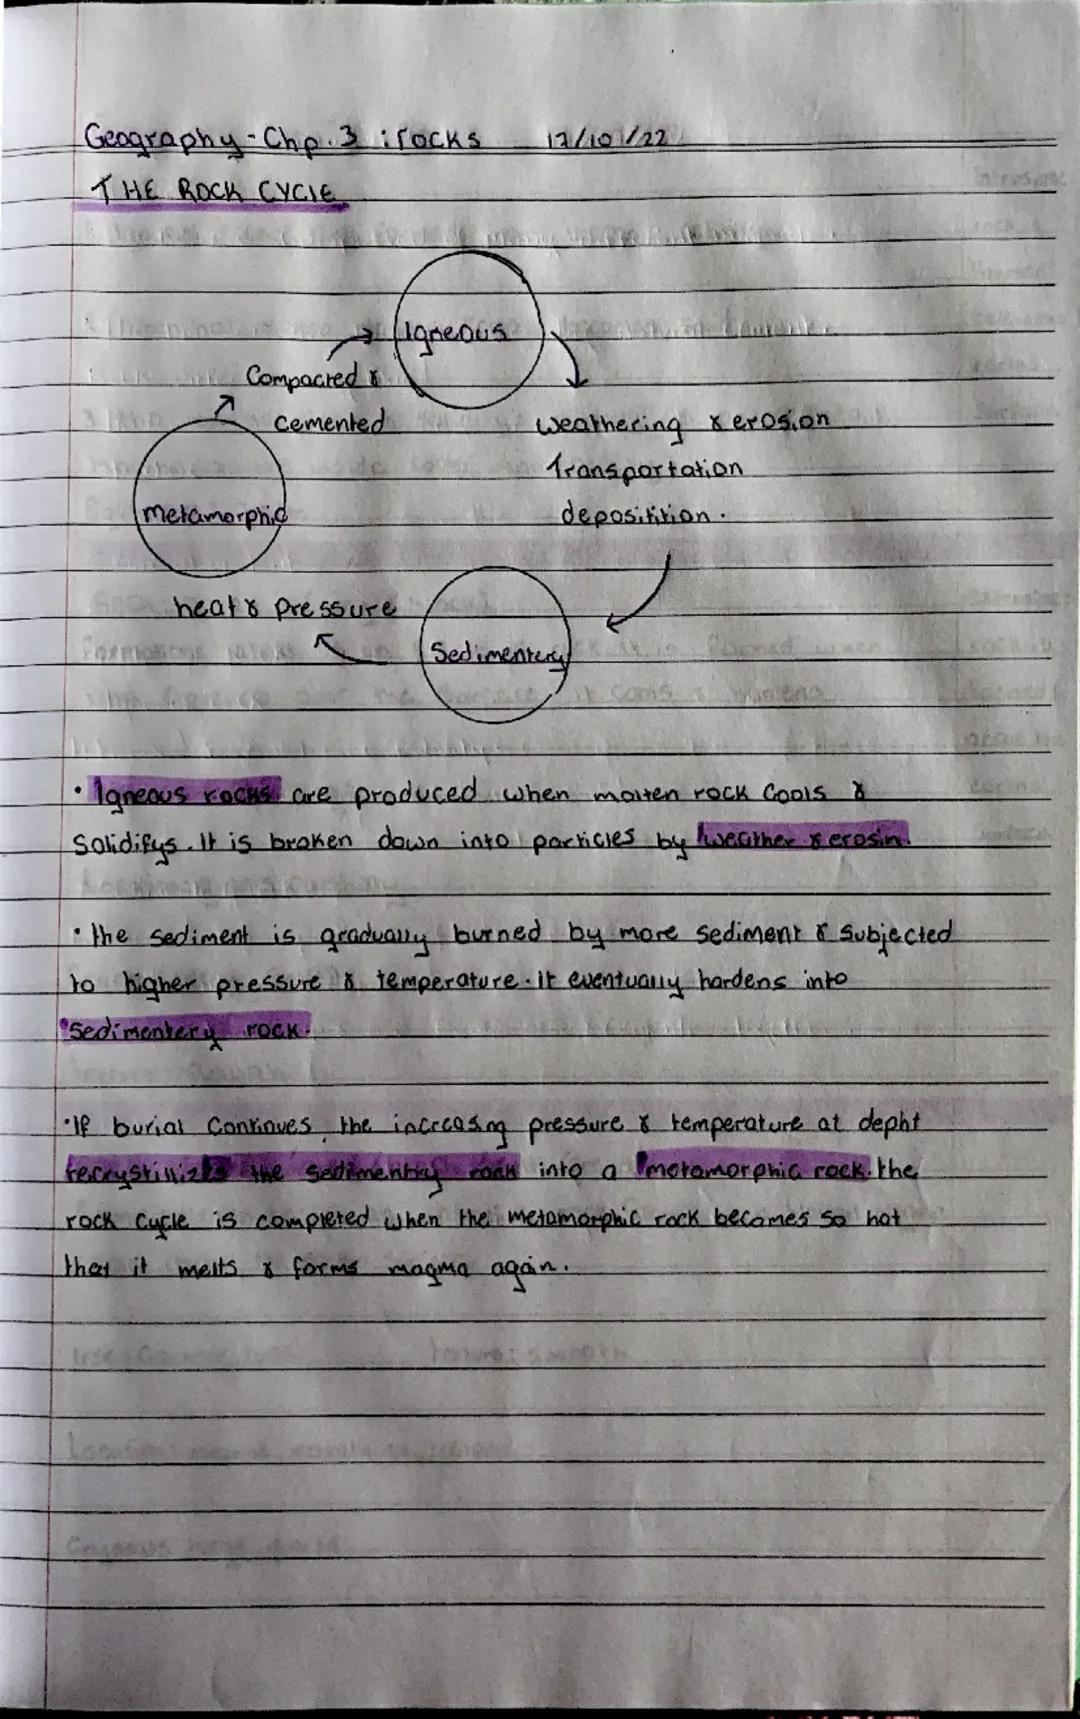 Geography - Chp. 3 : rocks 12/10/22
THE ROCK CYCLE
Igneous
Compacted &
cemented
weathering & erosion
Transportation
depositition.
metamorphic
heat & pressure
Sedimentery
• Igneous rocks are produced when molten rock cools &
Solidifys. It is broken down into particles by weather & erosin.
• the sediment is gradually burned by more sediment & subjected
to higher pressure & temperature. It eventually hardens into
Sedimentery rock.
• If burial continues, the increasing pressure & temperature at depht
the sedimentry rock into a metamorphic rock. the
rock cycle is completed when the metamorphic rock becomes so hot
that it melts & forms magma again.